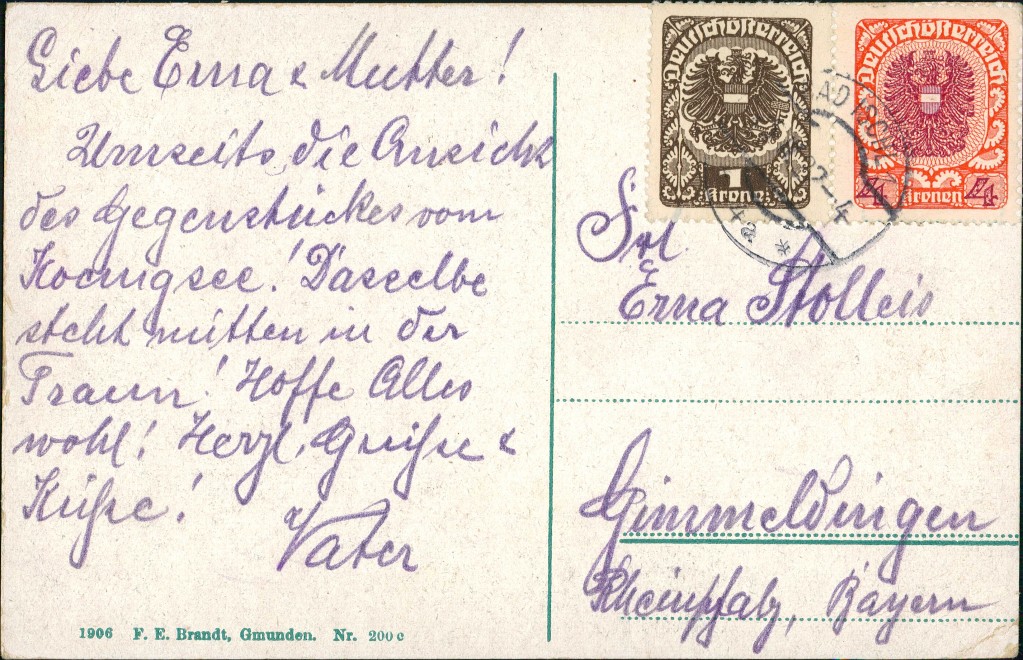 Liebe Erna & Mutter!
Umseits die Ansicht
des Gegenstückes vom
Koenigsee! Dasselbe
steht mitten in der
Traun! Hoffe Alles
wohl! Herzl. Grüße &
Küße!
Vater
1906 F. E. Brandt, Gmunden. Nr. 200 c
Deutschösterreich
1
Kronen
Deutschösterreich
4 4
Kronen
BAD ISCHL
Frl.
Erna Stolleis
Gimmeldingen
Rheinpfalz, Bayern